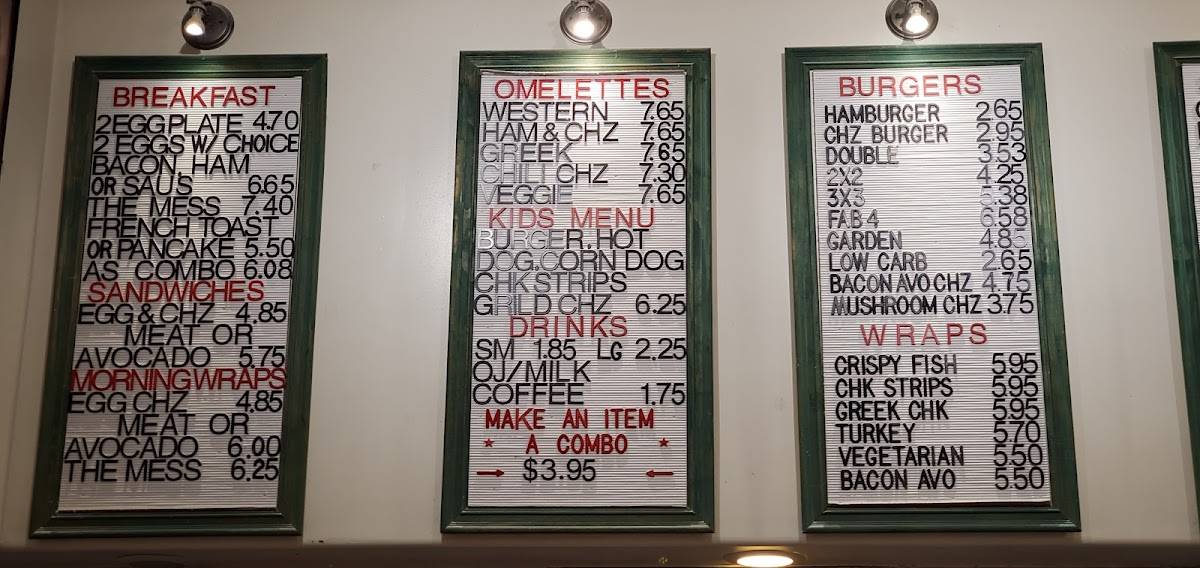 BREAKFAST
2 EGG PLATE 4.70
2 EGGS W/ CHOICE
BACON, HAM
OR SAU'S 6.65
THE MESS 7.40
FRENCH TOAST
OR PANCAKE 5.50
AS COMBO 6.08
SANDWICHES
EGG & CHZ 4.85
MEAT OR
AVOCADO 5.75
MORNING WRAPS
EGG CHZ 4.85
MEAT OR
AVOCADO 6.00
THE MESS 6.25
OMELETTES
WESTERN 7.65
HAM & CHZ 7.65
GREEK 7.65
CHILI CHZ 7.30
VEGGIE 7.65
KIDS MENU
BURGER, HOT
DOG, CORN DOG
CHK STRIPS
GRILD CHZ 6.25
DRINKS
SM 1.85 LG 2.25
OJ/MILK
COFFEE 1.75
MAKE AN ITEM
* A COMBO *
→ $3.95 ←
BURGERS
HAMBURGER 2.65
CHZ BURGER 2.95
DOUBLE 3.53
2X2 4.25
3X3 5.38
FAB 4 6.58
GARDEN 4.85
LOW CARB 2.65
BACON AVO CHZ 4.75
MUSHROOM CHZ 3.75
WRAPS
CRISPY FISH 5.95
CHK STRIPS 5.95
GREEK CHK 5.95
TURKEY 5.70
VEGETARIAN 5.50
BACON AVO 5.50